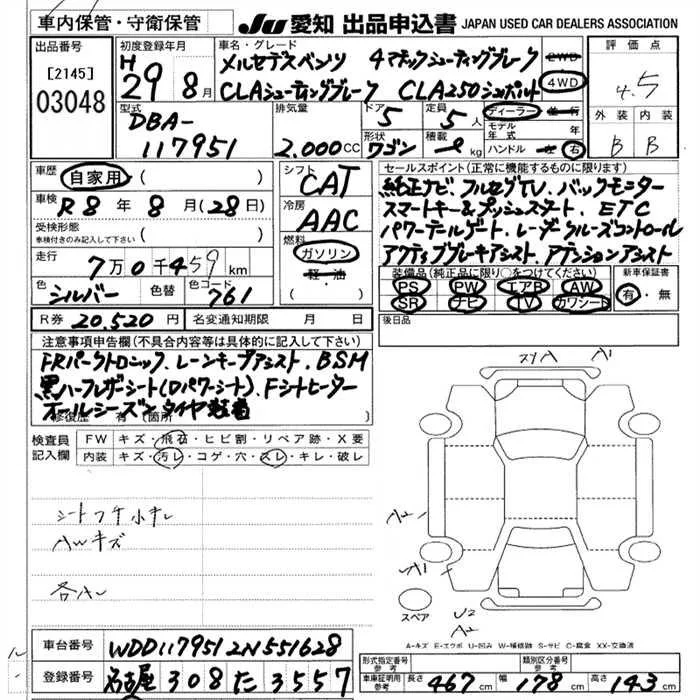 車内保管・守衛保管
JU 愛知 出品申込書 JAPAN USED CAR DEALERS ASSOCIATION
出品番号
[2145]
03048
初度登録年月
H
29 8月
車名・グレード
メルセデスベンツ 4マチックシューティングブレーク
CLAシューティングブレーク CLA250シュポルト
2WD
4WD
評価点
4.5
外装 内装
B B
型式
DBA-
117951
排気量
2.000CC
ドア
5
定員
5人
形状
ワゴン
積載
kg
ディーラー・並行
モデル年式 年
ハンドル 左 右
車歴
自家用 ( )
車検
R8年8月(28日)
受検形態
車検付きのみ記入して下さい ( )
走行
7万0千459km
色
シルバー
色替
色コード
761
シフト
CAT
冷房
AAC
燃料
ガソリン
軽・油
( )
セールスポイント(正常に機能するものに限ります)
純正ナビ、フルセグTV、バックモニター
スマートキー&プッシュスタート、ETC
パワーテールゲート、レーダークルーズコントロール
アクティブブレーキアシスト、アテンションアシスト
装備品(純正品に限り○をつけてください)
PS PW エアB AW
SR ナビ TV カワシート
新車保証書
有・無
R券 20,520円
名変通知期限 月 日
後日品
注意事項申告欄(不具合内容等は具体的に記入して下さい)
FRパークトロニック、レーンキープアシスト、BSM
黒ハーフレザーシート(Dパワーシート)、Fシートヒーター
オールシーズンタイヤ装着
修復歴 有(箇所 )
検査員
記入欄
FW キズ・飛石・ヒビ割・リペア跡・X要
内装 キズ・汚レ・コゲ・穴・スレ・キレ・破レ
AWキズ
A1
A2
A1
U2
A2
スペア
A-キズ E-エクボ U-凹み W-補修跡 S-サビ C-腐食 XX-交換済
車台番号 WDD1179512N551628
登録番号 名古屋 308 た 3557
形式指定番号
参考
類別区分番号
参考
車庫証明用
参考
長さ 467cm 幅 178cm 高さ 143cm